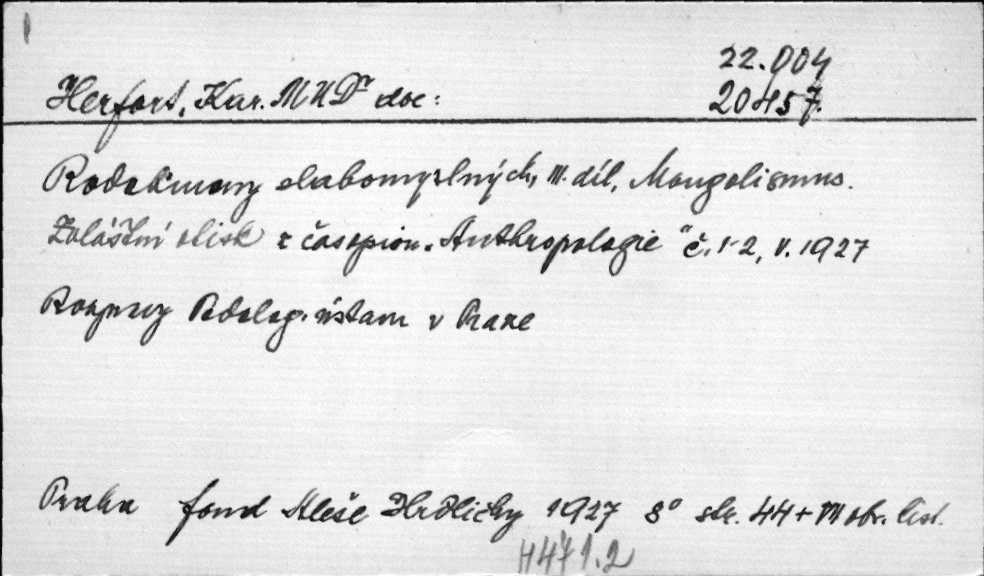 22.004
Herfort, Kar. MUDr doc: 20457.
Rodokmeny slabomyslných, III. díl, Mongolismus.
Zvláštní otisk z časopisu „Anthropologie“ č. 1-2, V. 1927
Rozpravy Pedolog. ústavu v Praze
Praha fond Aleše Hrdličky 1927 8° str. 44 + VII obr. list.
H471.2